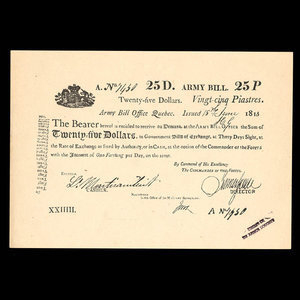 A. No 7450 25D. ARMY BILL. 25P
Twenty-five Dollars. Vingt-cinq Piastres.
Army Bill Office Quebec. Issued 15 June 1815
The Bearer hereof is entitled to receive on Demand, at the Army Bill Office the Sum of
Twenty-five Dollars, in Government Bills of Exchange, at Thirty Days Sight, at
the Rate of Exchange as fixed by Authority, or in Cash, at the option of the Commander of the Forces
with the Interest of One Farthing per Day, on the same.
By Command of His Excellency
The Commander of the Forces.
Entered
CASHIER.
DIRECTOR
Registered
in the Office of the Military Secretary,
XXIIIII.
A No 7450